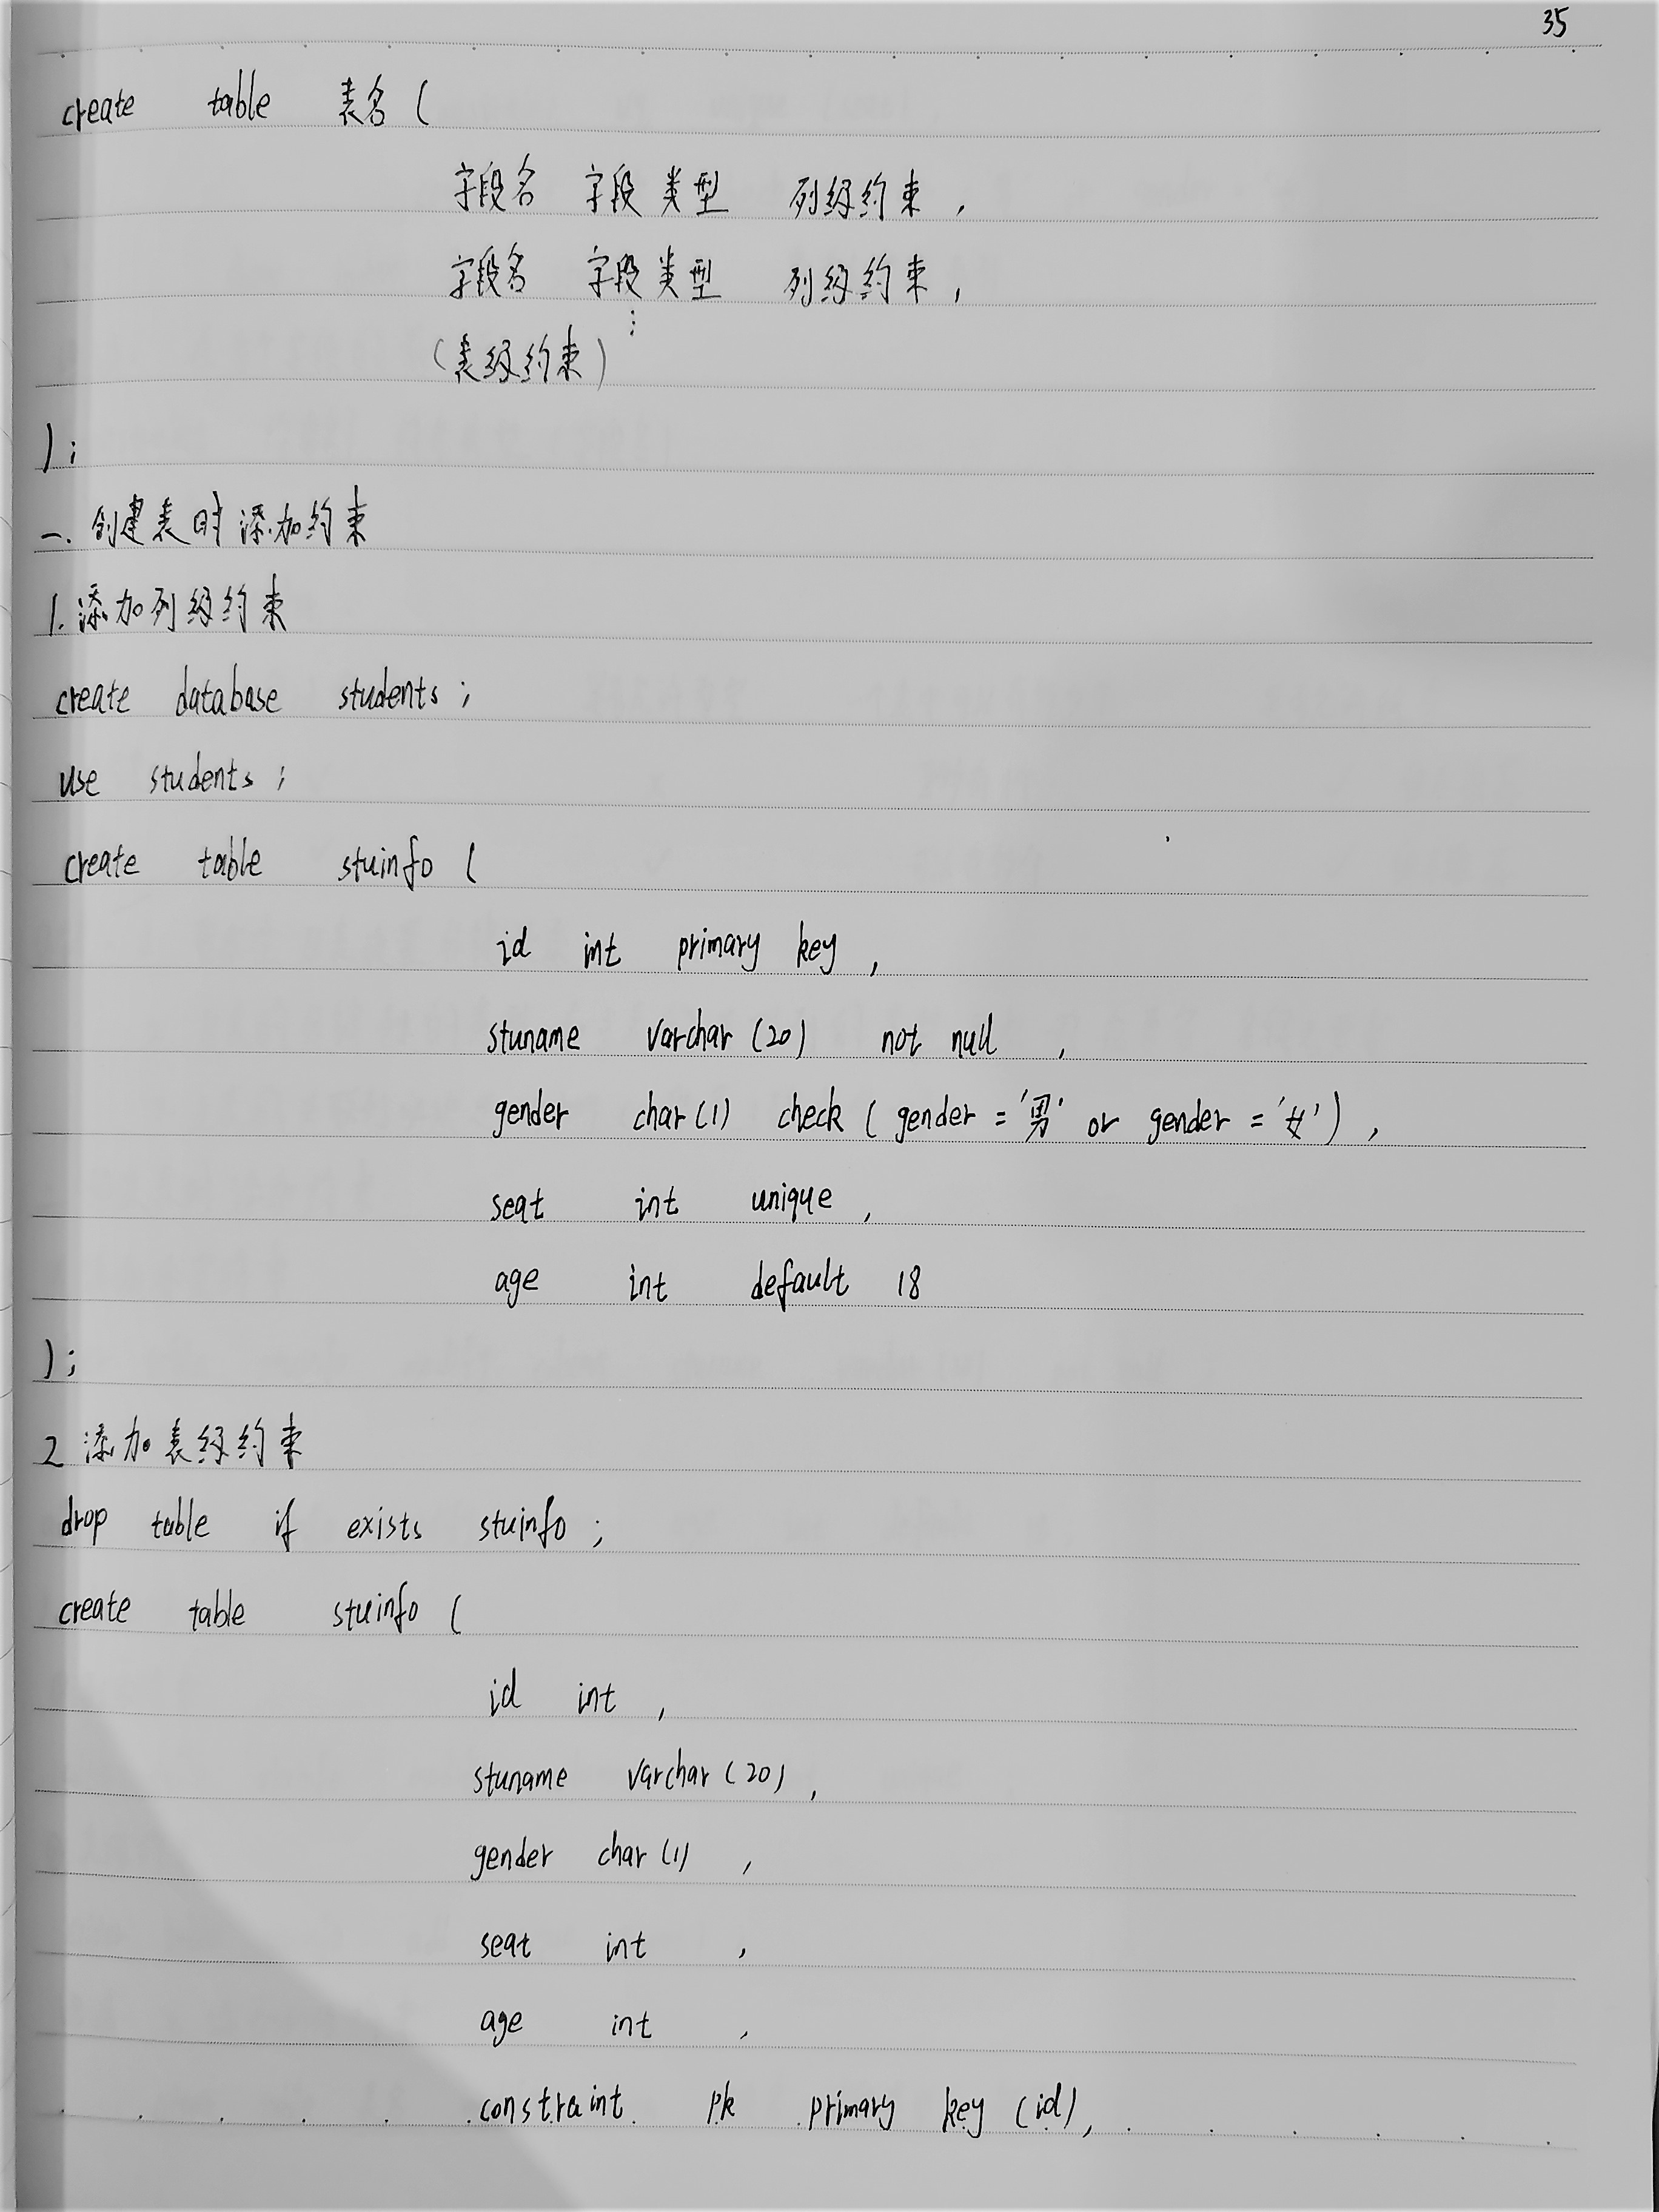 35
create table 表名 (
字段名 字段类型 列级约束 ,
字段名 字段类型 列级约束 ,
⋮
(表级约束)
);
一. 创建表时添加约束
1. 添加列级约束
create database students ;
use students ;
create table stuinfo (
id int primary key ,
stuname varchar (20) not null ,
gender char (1) check ( gender = '男' or gender = '女' ) ,
seat int unique ,
age int default 18
);
2 添加表级约束
drop table if exists stuinfo ;
create table stuinfo (
id int ,
stuname varchar (20) ,
gender char (1) ,
seat int ,
age int ,
constraint pk primary key (id) ,